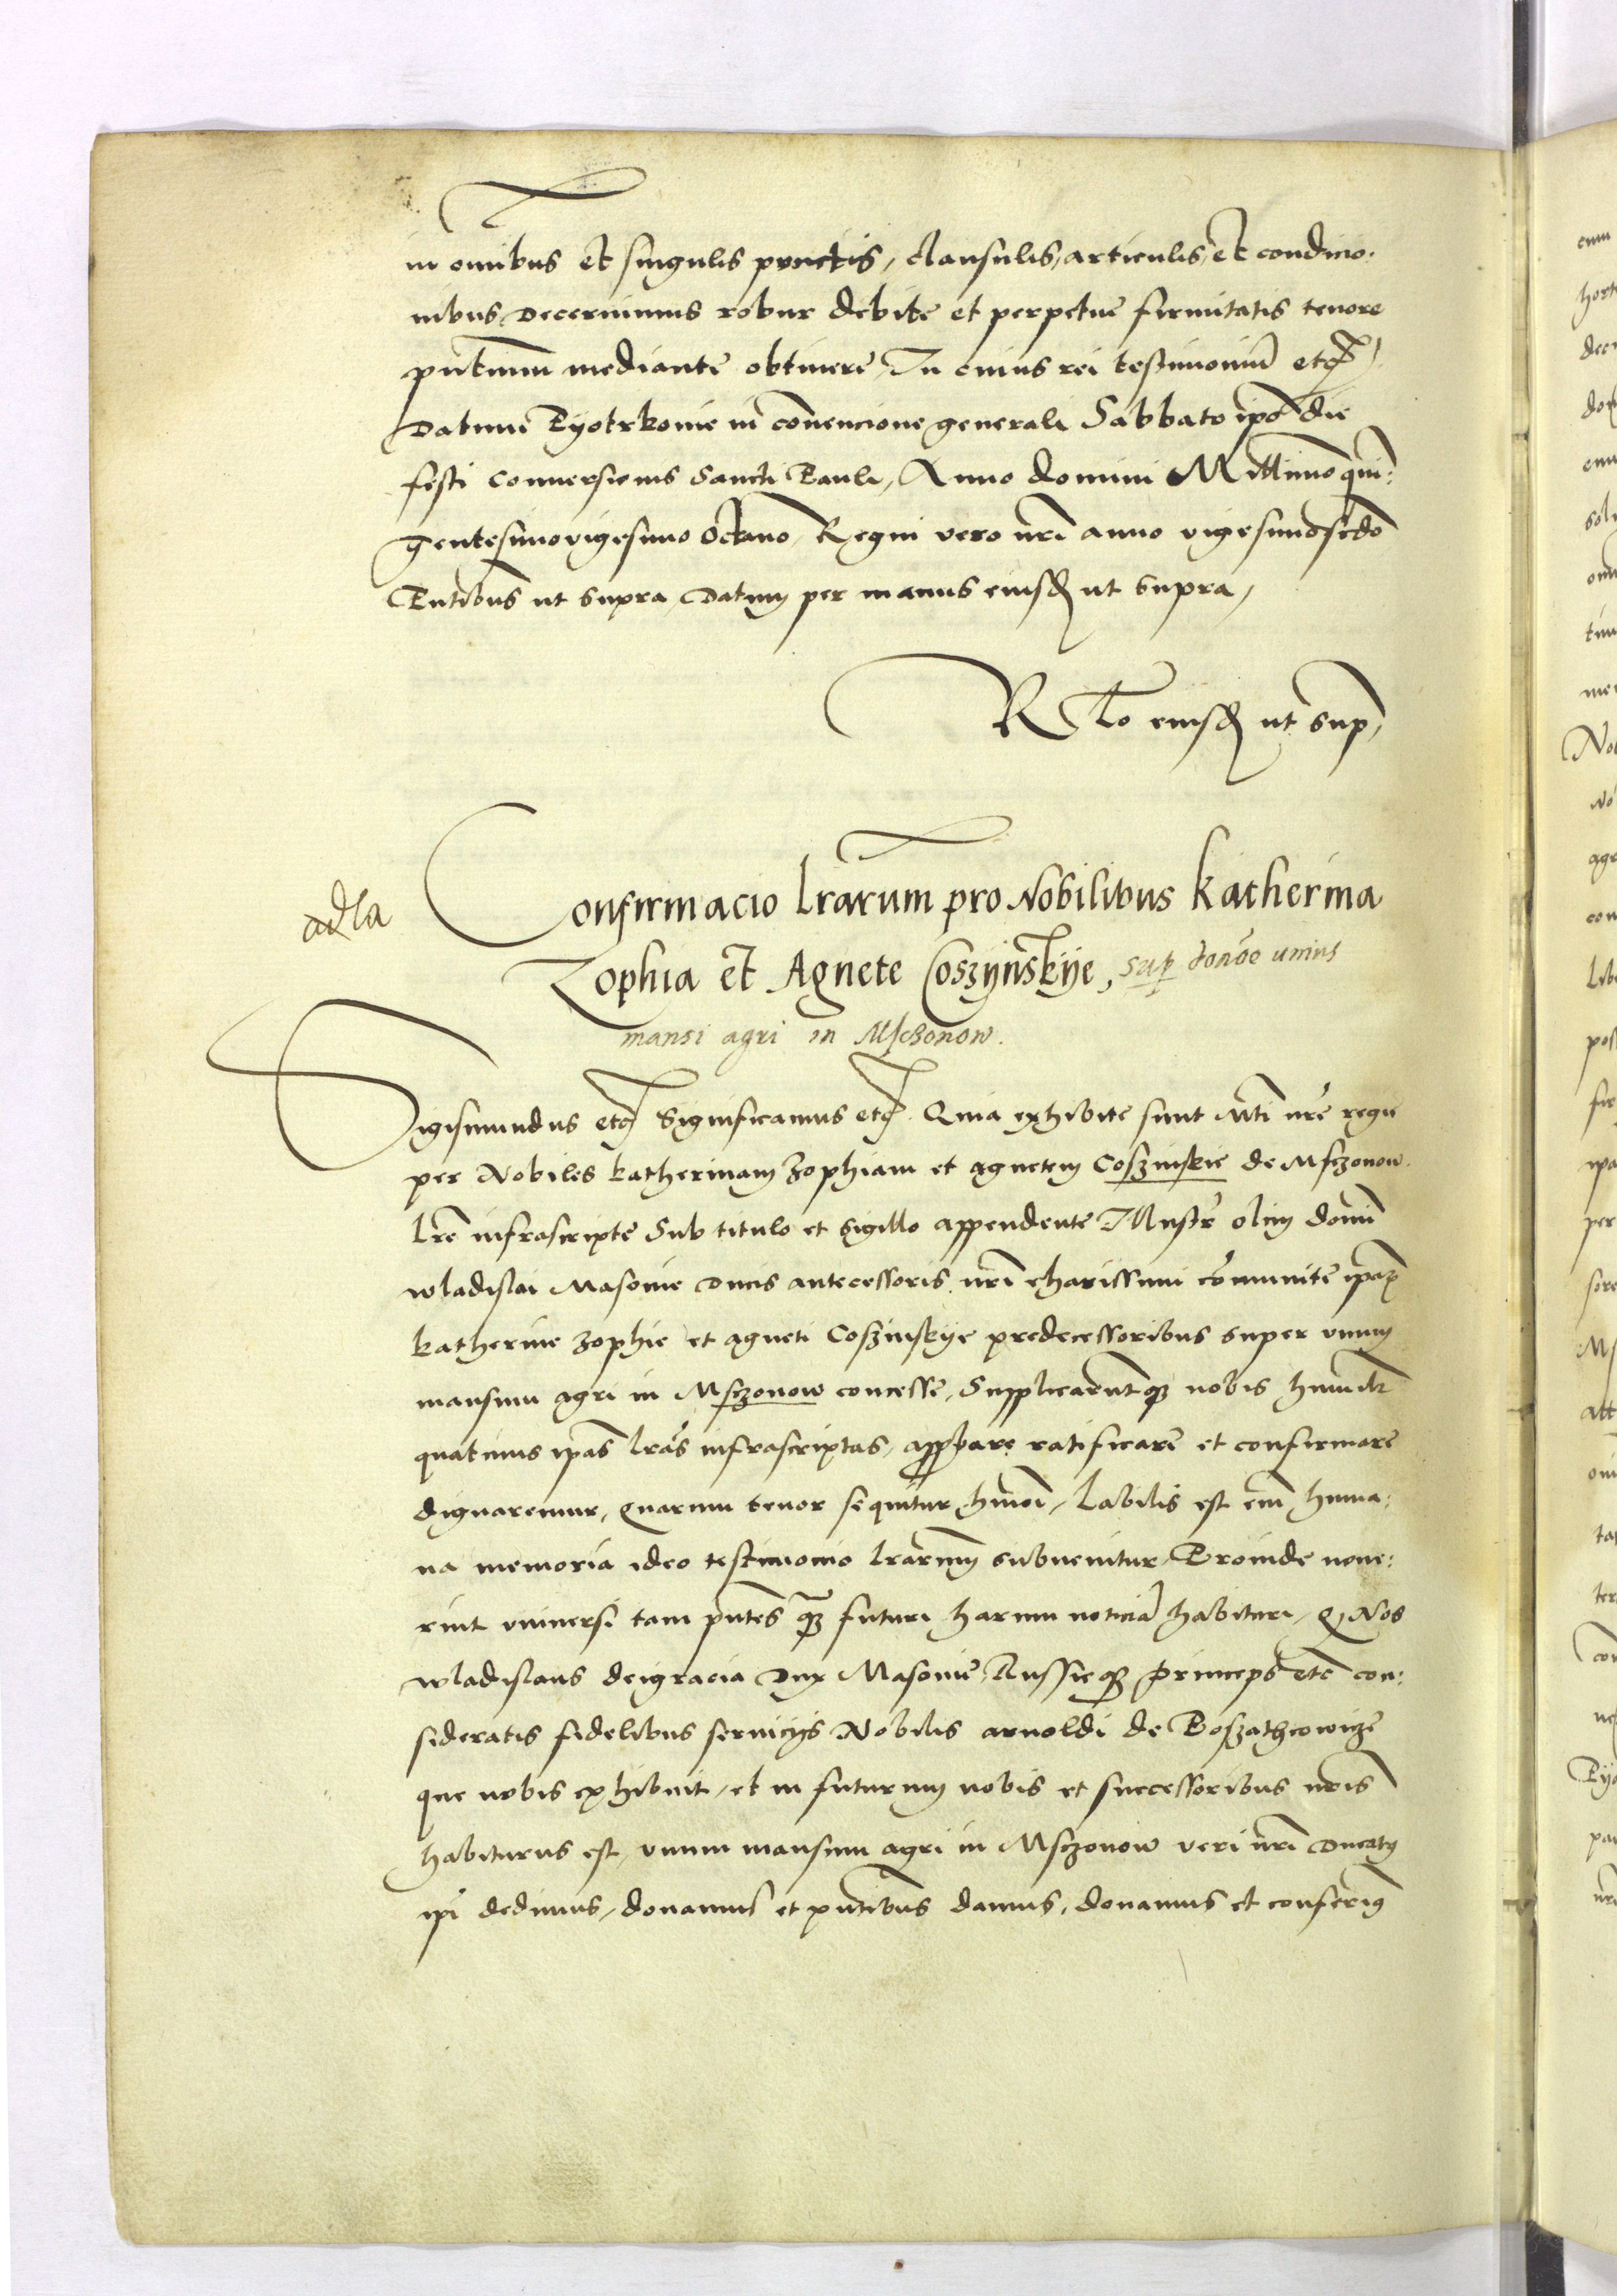 in omnibus et singulis punctis, clausulis, articulis, et condicio:
nibus, Decernimus robur debite et perpetue firmitatis tenore
pñtium mediante obtinere, In cuius rei testimoniũ etc
Datum Pyotrkovie in convencione generali Sabbato ip̃o die
festi conversionis Sancti Pauli, Anno domini Millimo quin:
gentesimovigesimo Octavo, Regni vero nr̃i anno vigesimosc̃do
Pñtibus ut supra, Datum per manus eiusd ut supra,
R̃tio eiusd ut sup,
adla
Confirmacio Lr̃arum pro Nobilibus Katherina
Zophia et Agnete Coszÿnskÿe, sup donõe unius
mansi agri in Msczonow.
Sigismundus etc Significamus etc Quia exhibite sunt Mti nr̃e regie
per Nobiles Katherinam Zophiam et Agnetem Coszinskie de Msczonow.
Lr̃e infrascripte Sub titulo et sigillo appendente Illustr̃ olim domĩ
Wladislai Masovie Ducis antecessoris nr̃i charissimi cõmunite ip̃aȝ
Katherine Zophie et Agneti Coszinskÿe predecessoribus super unum
mansum agri in Msczonow concesse, Supplicaruntqȝ nobis humilr̃
quatinus ip̃as lr̃as infrascriptas, approbare ratificare et confirmare
dignaremur, Quarum tenor sequitur hmõi, Labilis est em̃ huma:
na memoria ideo testimonio lr̃arum subvenitur, Proinde nove:
rint universi tam pñtes q̃ȝ futuri harum noticiã habituri, Q Nos
Wladislaus dei gracia Dux Masovie, Russieqȝ Princeps etc con:
sideratis fidelibus servicÿs Nobilis Arnoldi de Boszathcowicze
que nobis exhibuit, et in futurum nobis et successoribus nr̃is
habiturus est, unum mansum agri in Msczonow veri nr̃i Ducatus
ip̃i dedimus, donavimus et pñtibus damus, donamus et conferimus